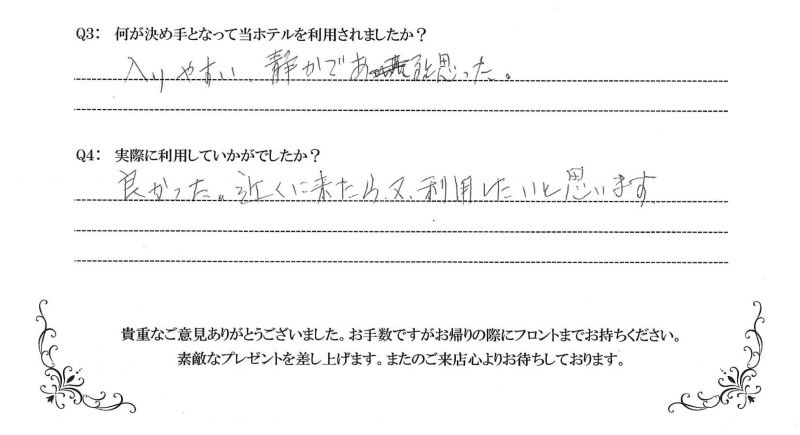 Q3: 何が決め手となって当ホテルを利用されましたか？
入りやすい、静かであると思った。
Q4: 実際に利用していかがでしたか？
良かった。近くに来たら、又、利用したいと思います
貴重なご意見ありがとうございました。お手数ですがお帰りの際にフロントまでお持ちください。
素敵なプレゼントを差し上げます。またのご来店心よりお待ちしております。